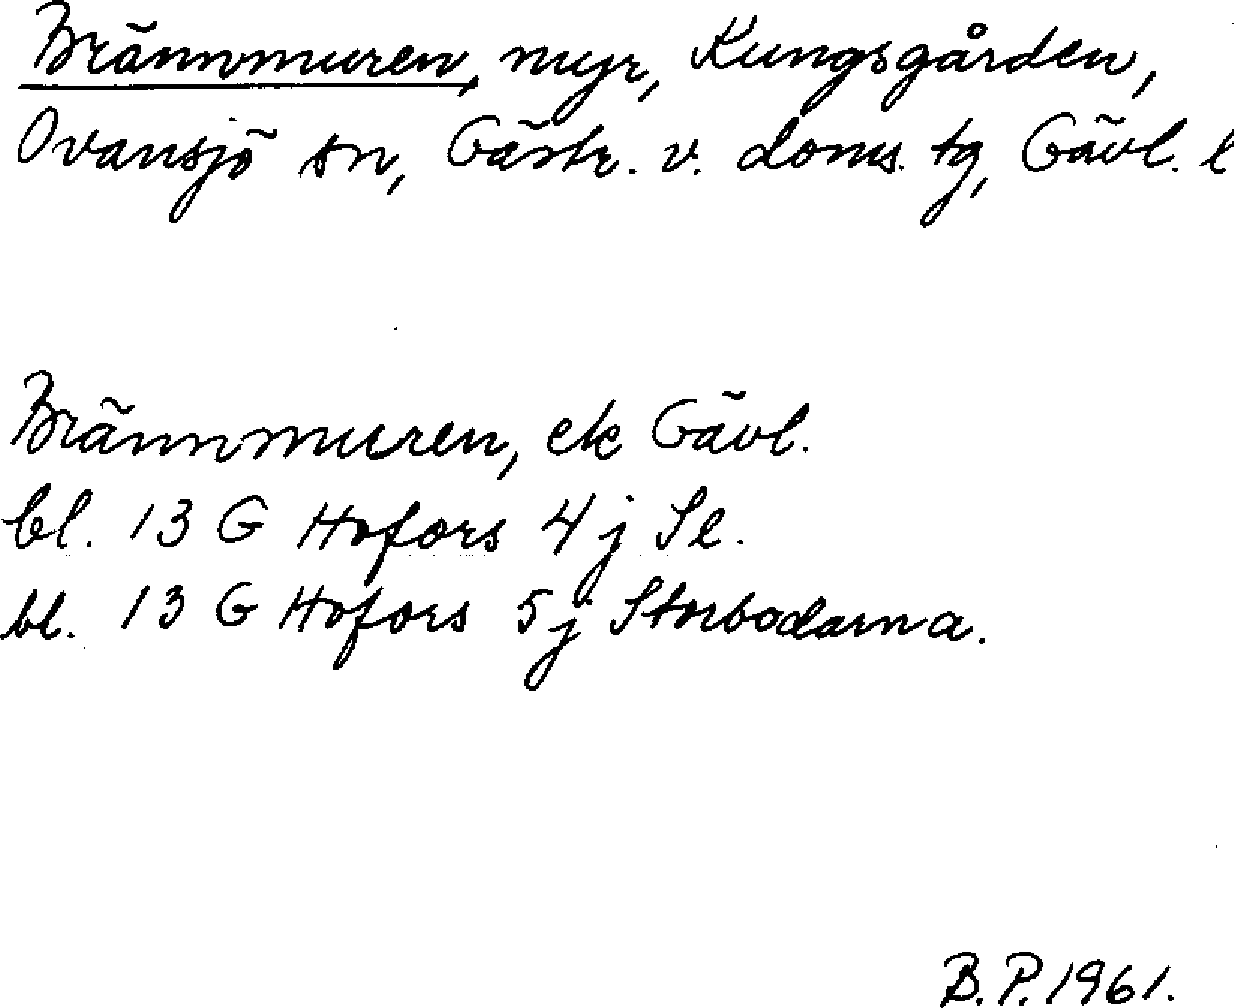 Brännmuren, myr, Kungsgården,
Ovansjö sn, Gästr. v. doms. tg, Gävl. l
Brännmuren, ek Gävl.
bl. 13 G Hofors 4 j Se.
bl. 13 G Hofors 5 j Storbodarna.
B.P. 1961.